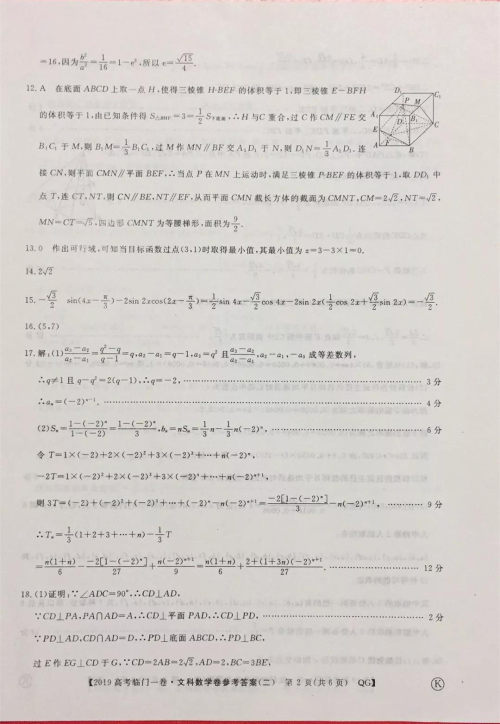 =16,因为b²/a²=1/16=1-e²,所以 e=√15/4.
12. A 在底面 ABCD 上取一点 H,使得三棱锥 H-BEF 的体积等于 1,即三棱锥 E-BFH
的体积等于 1,由已知条件得 S△BHF=3=1/2 S下底面,∴H 与 C 重合,过 C 作 CM∥FE 交
B₁C₁ 于 M,则 B₁M=1/3 B₁C₁,过 M 作 MN∥BF 交 A₁D₁ 于 N,则 D₁N=1/3 A₁D₁.连
接 CN,则平面 CMN∥平面 BEF,∴当点 P 在 MN 上运动时,满足三棱锥 P-BEF 的体积等于 1,取 DD₁ 中
点 T,连 CT,NT,则 CN∥BE,NT∥EF,从而平面 CMN 截长方体的截面为 CMNT,CM=2√2,NT=√2,
MN=CT=√5,四边形 CMNT 为等腰梯形,面积为 9/2.
13. 0 作出可行域,可知当目标函数过点(3,1)时取得最小值,其最小值为 z=3-3×1=0.
14. 2√2
15. -√3/2 sin(4x-π/3)-2sin 2xcos(2x-π/3)=1/2 sin 4x-√3/2 cos 4x-2sin 2x(1/2 cos 2x+√3/2 sin 2x)=-√3/2.
16. (5,7)
17. 解:(1)(a₃-a₂)/(a₂-a₁)=(q²-q)/(q-1)=q,a₂-a₁=q-1,a₃=q² 且(a₃-a₂)/(a₂-a₁),a₂-a₁,-a₃ 成等差数列,
∴q≠1 且 q-q²=2(q-1),∴q=-2, …… 3 分
∴aₙ=(-2)ⁿ⁻¹. …… 4 分
(2)Sₙ=[1-(-2)ⁿ]/[1-(-2)]=[1-(-2)ⁿ]/3,bₙ=nSₙ=1/3 n-1/3 n(-2)ⁿ, …… 6 分
令 T=1×(-2)+2×(-2)²+3×(-2)³+…+n(-2)ⁿ,
-2T=1×(-2)²+2×(-2)³+3×(-2)⁴+…+n(-2)ⁿ⁺¹,
则 3T=(-2)+(-2)²+(-2)³+…+(-2)ⁿ-n(-2)ⁿ⁺¹=-2[1-(-2)ⁿ]/3-n(-2)ⁿ⁺¹, …… 9 分
∴Tₙ=1/3(1+2+3+…+n)-1/3 T
=n(1+n)/6-(-2[1-(-2)ⁿ])/27+n(-2)ⁿ⁺¹/9=n(1+n)/6+[2+(1+3n)(-2)ⁿ⁺¹]/27. …… 12 分
18. (1)证明:∵∠ADC=90°,∴CD⊥AD,
∵CD⊥PA,PA∩AD=A,∴CD⊥平面 PAD,∴CD⊥PD, …… 2 分
∵PD⊥AD,CD∩AD=D,∴PD⊥底面 ABCD,∴PD⊥BC,
过 E 作 EG⊥CD 于 G,∵CD=2AB=2√2,AD=2,BC=3BE,
【2019 高考临门一卷·文科数学卷参考答案(二) 第 2 页(共 6 页) QG】 K